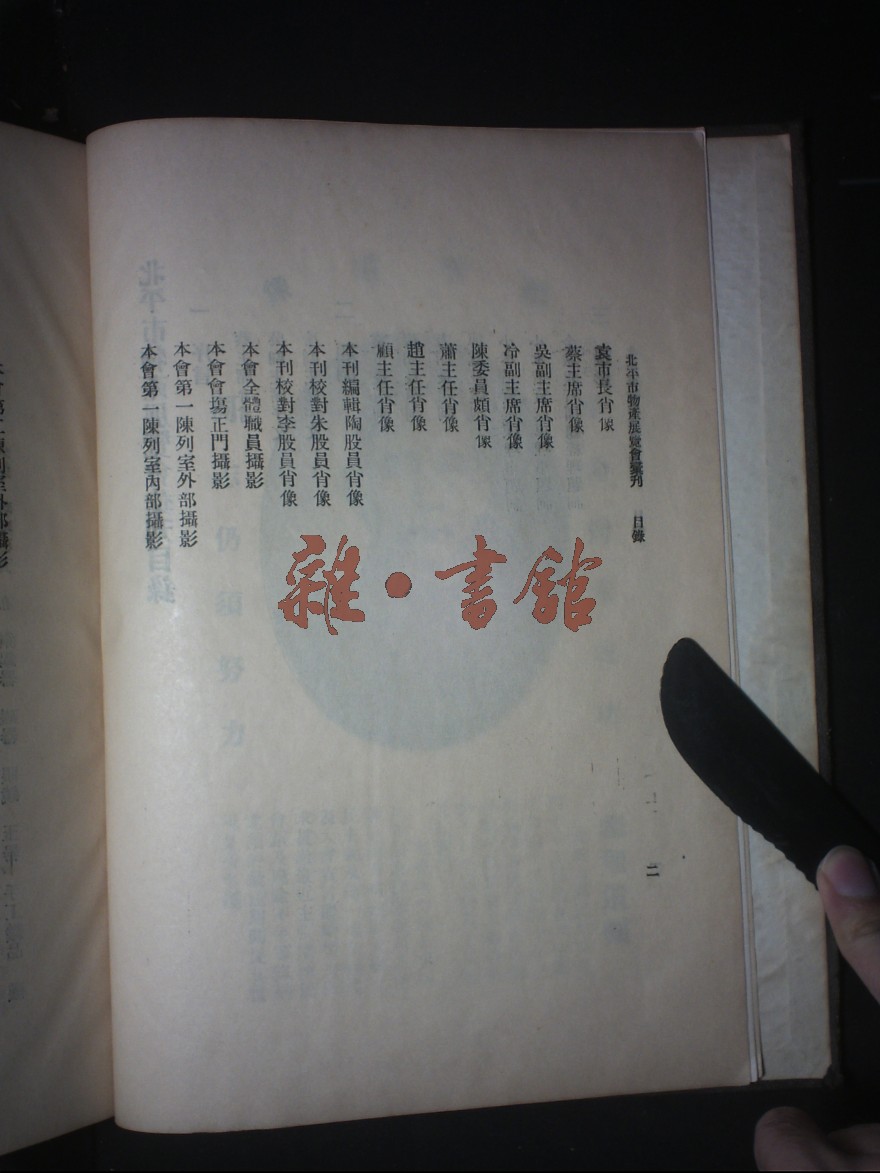 北平市物產展覽會彙刊　目錄
二
袁市長肖像
蔡主席肖像
吳副主席肖像
冷副主席肖像
陳委員頗肖像
蕭主任肖像
趙主任肖像
顧主任肖像
本刊編輯陶股員肖像
本刊校對朱股員肖像
本刊校對李股員肖像
本會全體職員攝影
本會會場正門攝影
本會第一陳列室外部攝影
本會第一陳列室內部攝影
雜·書館